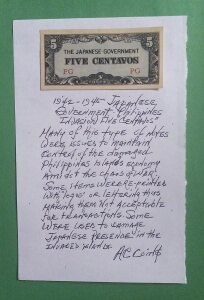 5 THE JAPANESE GOVERNMENT 5
FIVE CENTAVOS
PG PG
1942-1945 JAPANESE
GOVERNMENT PHILIPPINES
INVASION FIVE CENTAVOS
MANY OF THIS TYPE OF NOTES
WERE ISSUED TO MAINTAIN
CONTROL OF THE DAMAGED
PHILIPPINES ISLANDS ECONOMY
AMIDST THE CHAOS OF WAR.
SOME ITEMS WERE RE-PRINTED
WITH "LOGO" OR LETTERING THUS
MAKING THEM NOT ACCEPTABLE
FOR TRANSACTIONS. SOME
WERE USED TO DAMAGE
JAPANESE PRESENCE IN THE
INVADED ISLANDS